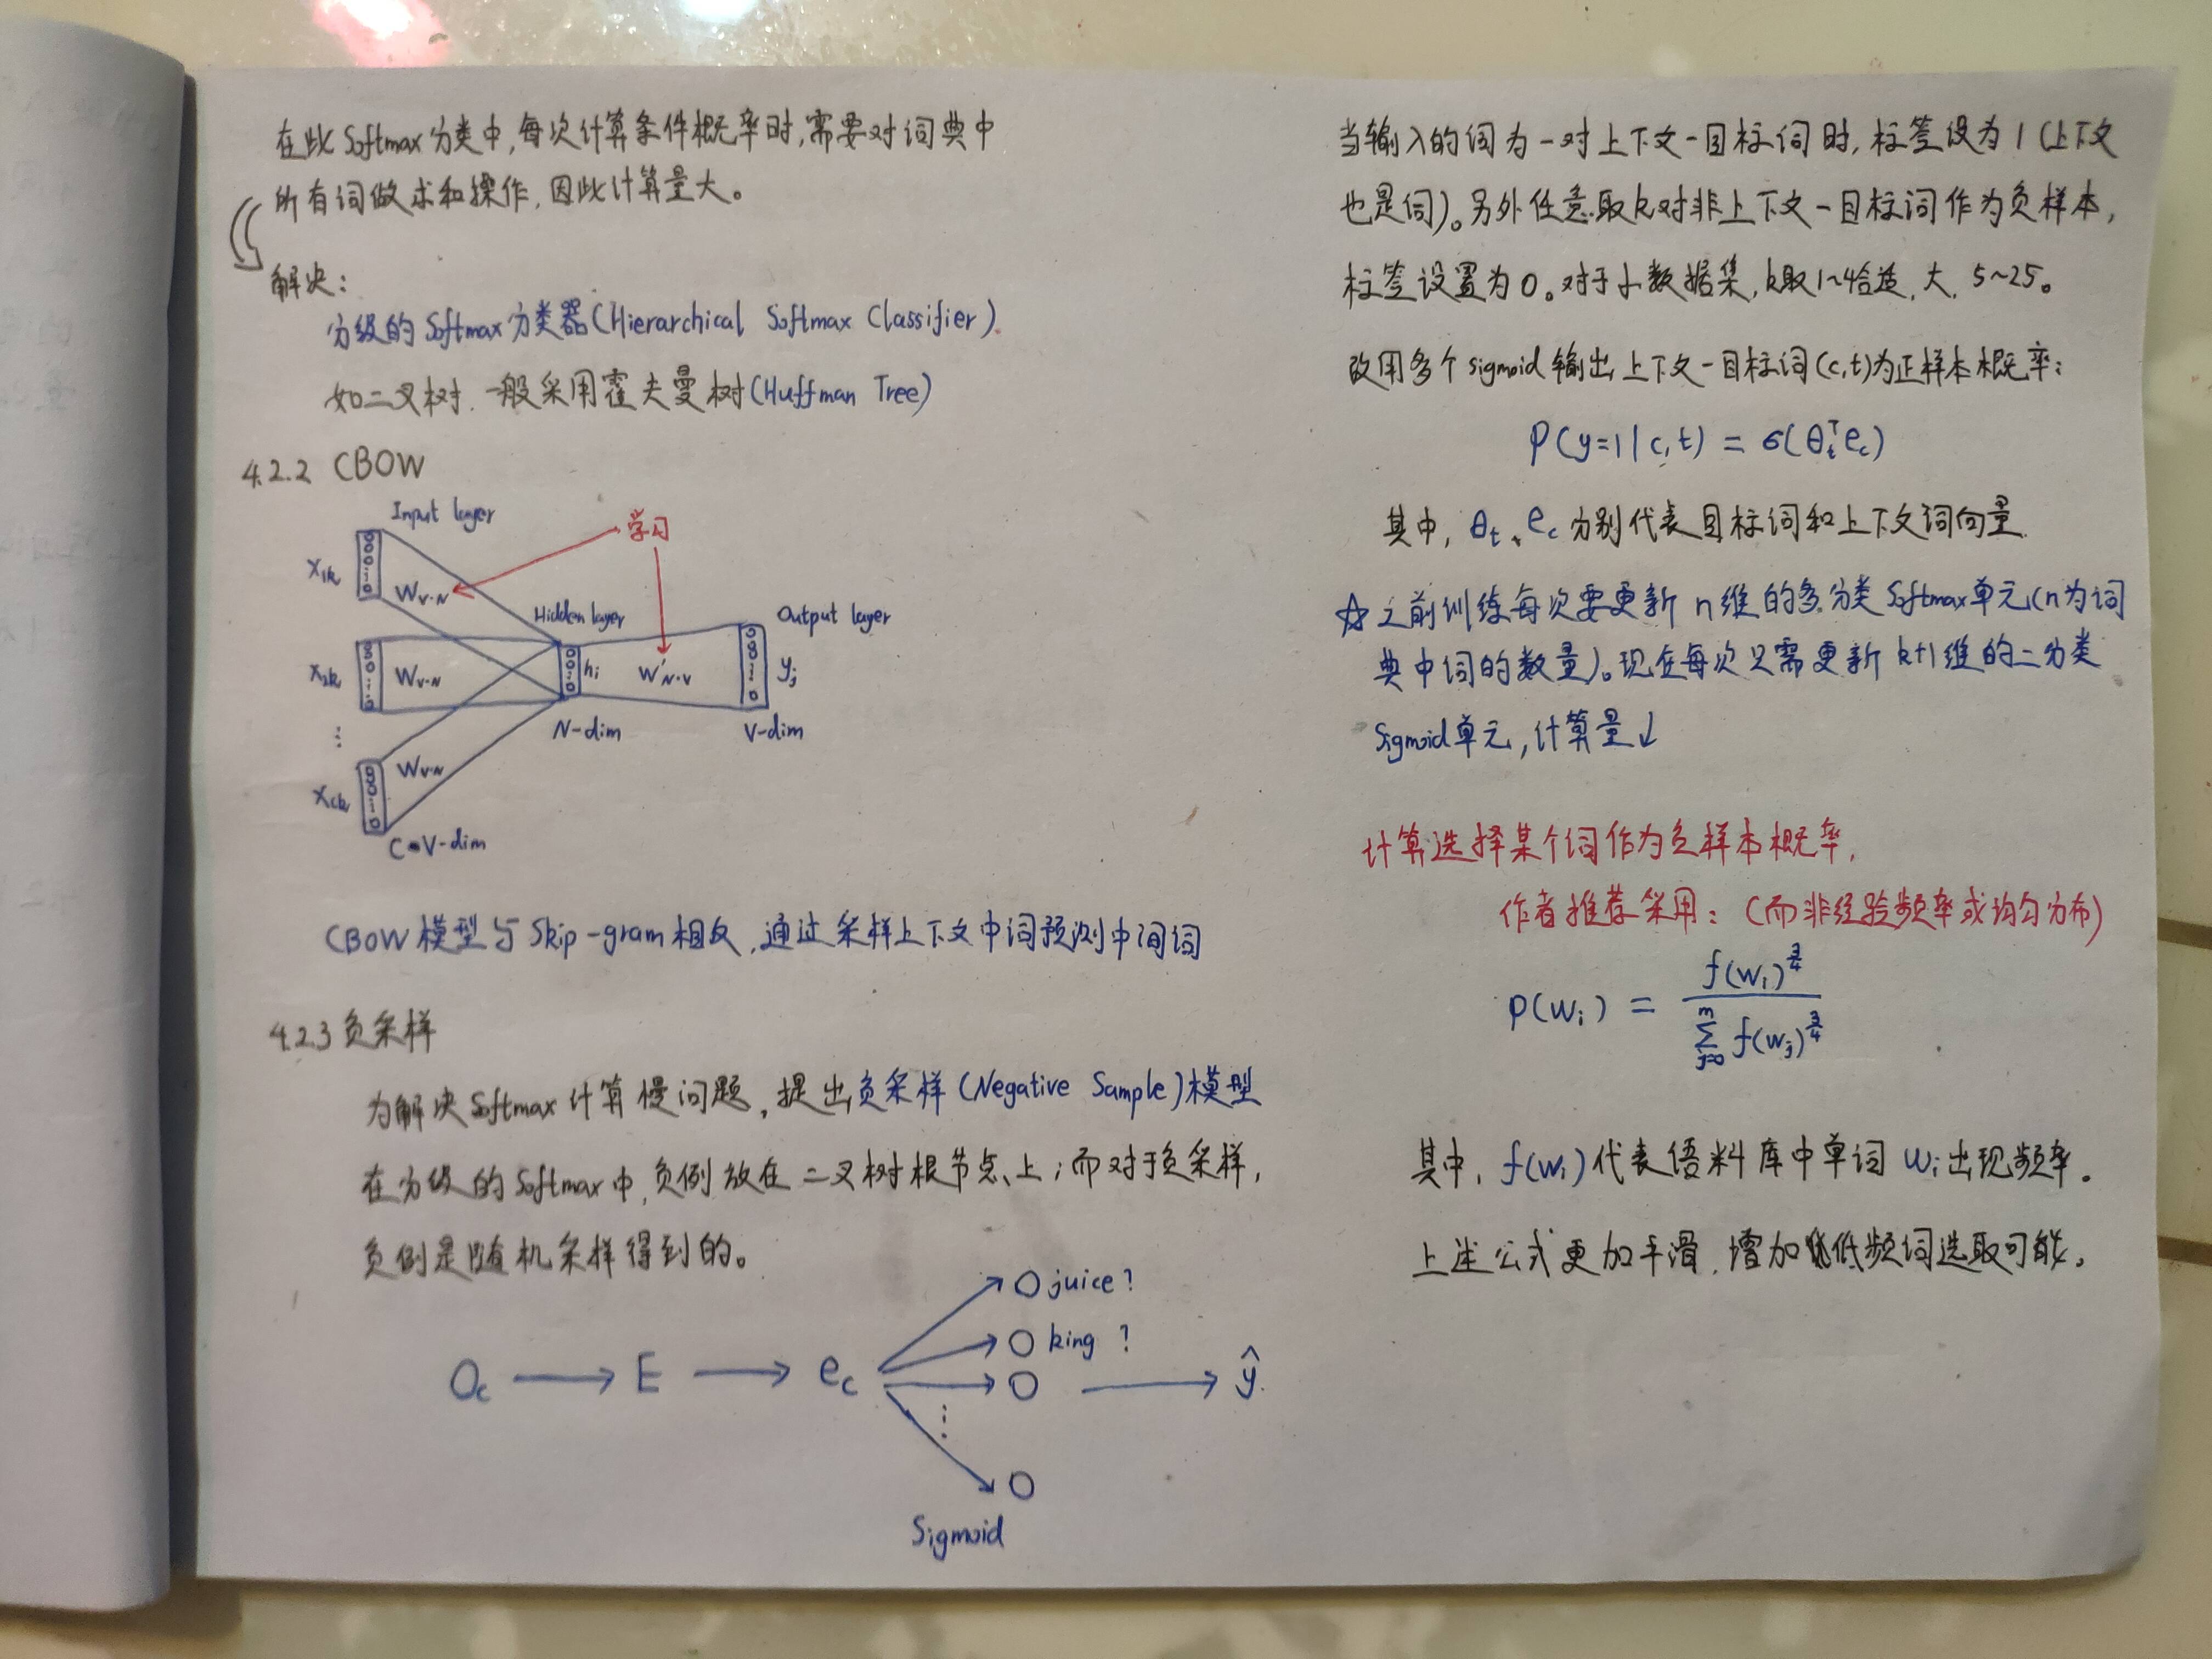 在此Softmax分类中,每次计算条件概率时,需要对词典中
所有词做求和操作,因此计算量大。
解决:
分级的Softmax分类器(Hierarchical Softmax Classifier).
如二叉树.一般采用霍夫曼树(Huffman Tree)
4.2.2 CBOW
Input layer
学习
X1k
WV·N
Hidden layer
Output layer
X2k
WV·N
hi
W'N·V
yj
N-dim
V-dim
XCk
WV·N
C·V-dim
CBOW模型与Skip-gram相反,通过采样上下文中词预测中间词
4.2.3 负采样
为解决Softmax计算慢问题,提出负采样(Negative Sample)模型
在分级的Softmax中,负例放在二叉树根节点上;而对于负采样,
负例是随机采样得到的。
juice?
king ?
Oc → E → ec → ŷ.
Sigmoid
当输入的词为一对上下文-目标词时,标签设为1(上下文
也是词)。另外任意取k对非上下文-目标词作为负样本,
标签设置为0。对于小数据集,k取1~4合适,大,5~25。
改用多个sigmoid输出上下文-目标词(c,t)为正样本概率:
P(y=1|c,t) = σ(θtᵀec)
其中,θt、ec分别代表目标词和上下文词向量.
☆之前训练每次要更新n维的多分类Softmax单元(n为词
典中词的数量)。现在每次只需更新k+1维的二分类
Sigmoid单元,计算量↓
计算选择某个词作为负样本概率,
作者推荐采用:(而非经验频率或均匀分布)
P(wi) = f(wi)^(3/4) / Σ_{j=0}^{m} f(wj)^(3/4)
其中,f(wi)代表语料库中单词wi出现频率.
上述公式更加平滑,增加低频词选取可能。